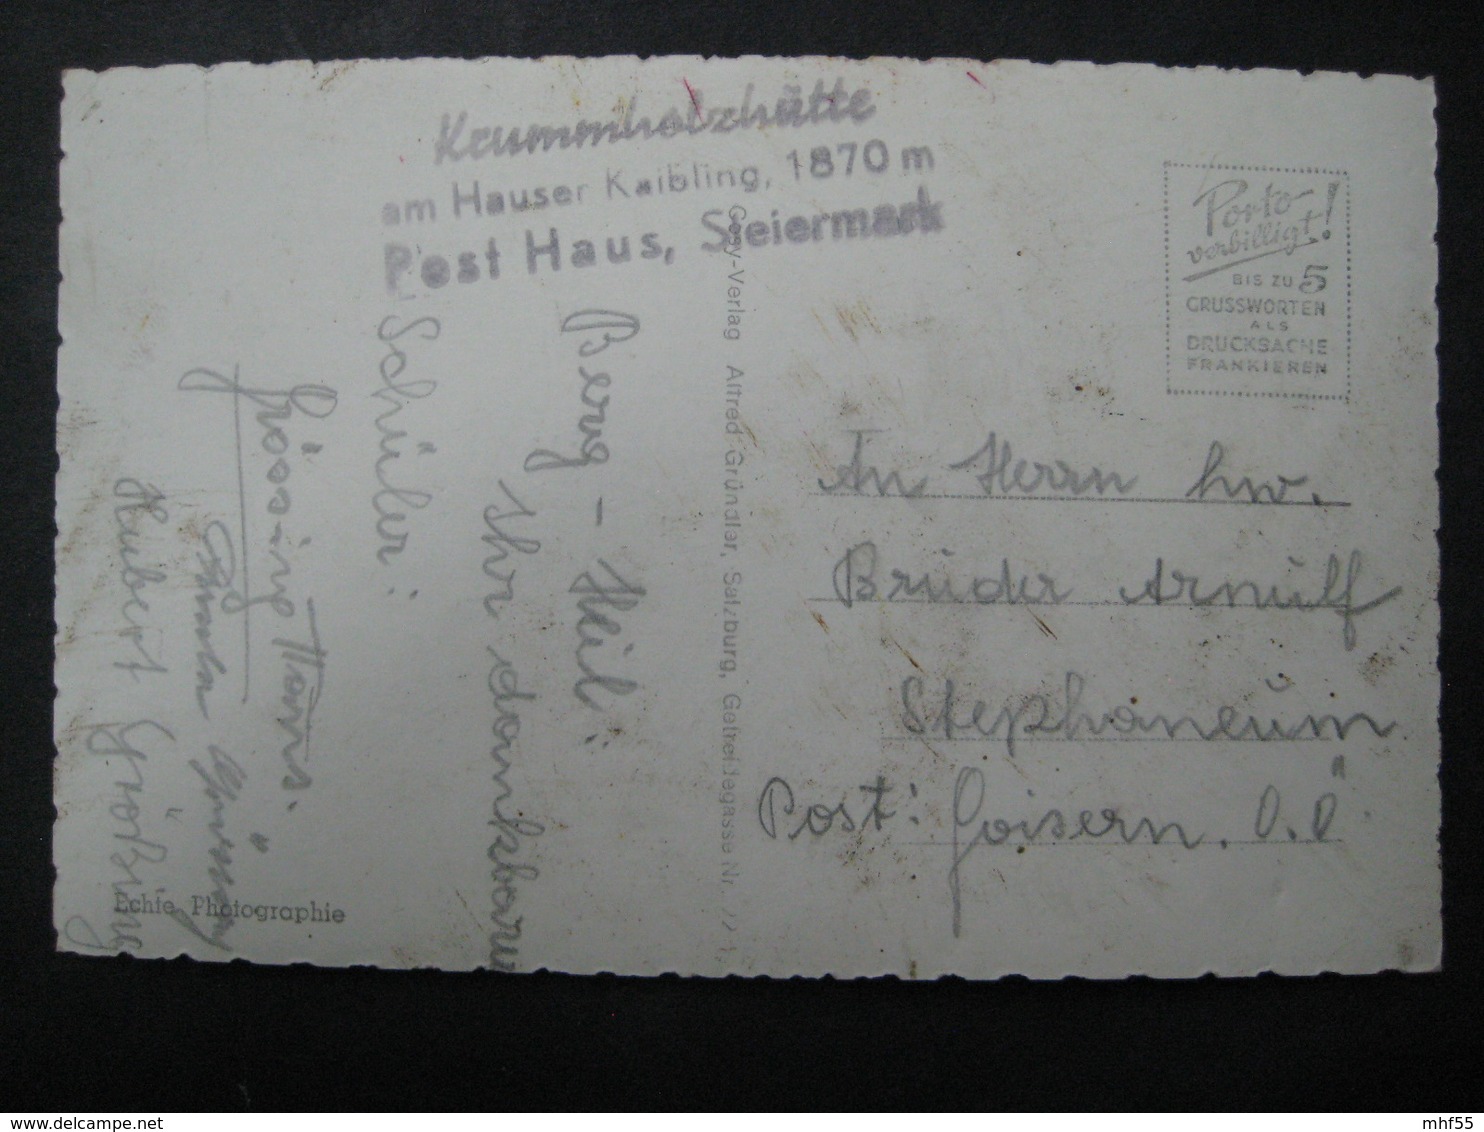 Krummholzhütte
am Hauser Kaibling, 1870 m
Post Haus, Steiermark
Porto-
verbilligt!
BIS ZU 5
GRUSSWORTEN
ALS
DRUCKSACHE
FRANKIEREN
Berg - Heil:
Ihr dankbarer
Schüler:
Hans.
Hubert
Cosy-Verlag Alfred Gründler, Salzburg, Getreidegasse Nr. 22
An Herrn hw.
Bruder Arnulf
Stephaneum
Post: Goisern. O.Ö
Echte Photographie
mhf55